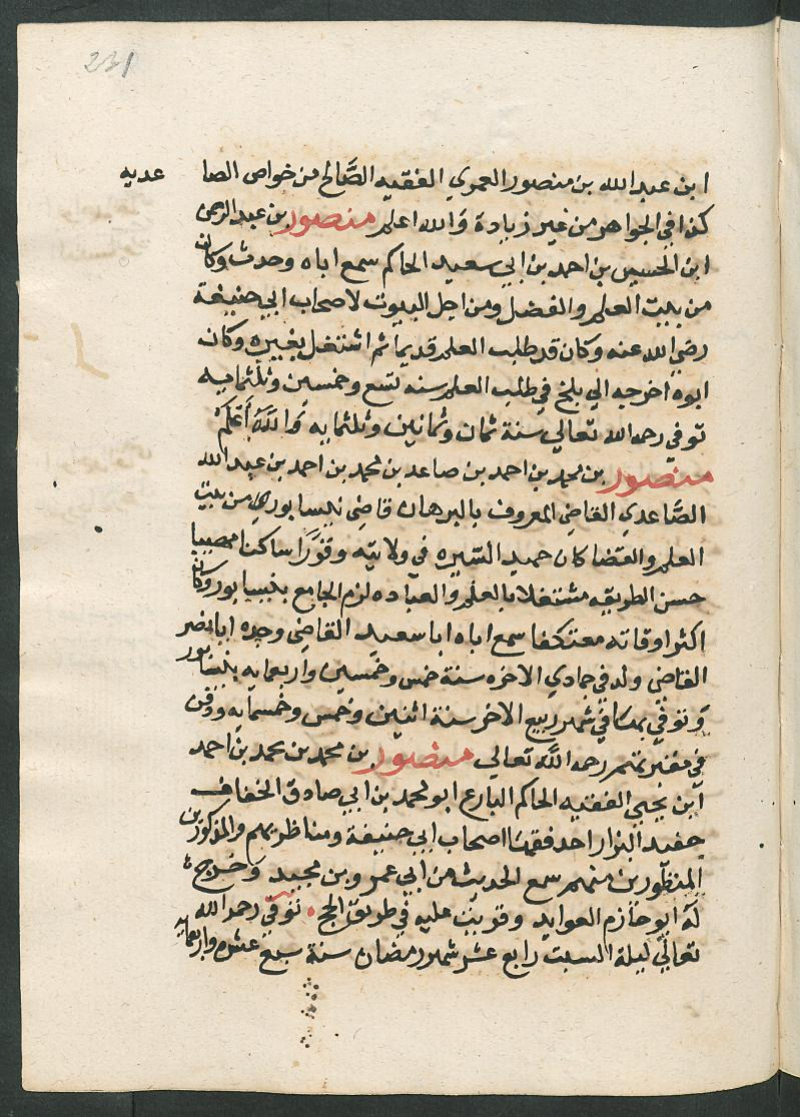 231
ابن عبد الله بن منصور العمري الفقيه الصَّالح من خواص الصا عديه
كذا في الجواهر من غير زيادة والله اعلم منصور بن عبد الرحمن
ابن الحسين بن احمد بن ابي سعيد الحاكم سمع اباه وحدث وكان
من بيت العلم والفضل ومن اجل البيوت لاصحاب ابي حنيفة
رضي الله عنه وكان قد طلب العلم قديما ثم اشتغل بغيره وكان
ابوه اخرجه الي بلخ في طلب العلم سنه تسع وخمسين وثلثمايه
توفي رحمه الله تعالي سنة ثمان وثمانين وثلثمايه والله أعلم
منصور بن محمد بن احمد بن صاعد بن محمد بن احمد بن عبد الله
الصَّاعدي القاضي المعروف بالبرهان قاضي نيسابوري من بيت
العلم والقضا كان حميد السيره في ولايته وقورًا ساكنا مصيبا
حسن الطريقه مشتغلا بالعلم والعباده لزم الجامع بنيسابور وكان
اكثر اوقاته معتكفا سمع اباه ابا سعيد القاضي وجده ابا نصر
القاضي ولد في جمادي الاخره سنة خمس وخمسين واربعمايه بنيسابور
وتوفي بها في شهر ربيع الاخر سنة اثنين وخمس وخمسمايه ودفن
في مقبرتهم رحمه الله تعالي منصور بن محمد بن محمد بن احمد
ابن يحيي الفقيه الحاكم البارع ابو محمد بن ابي صادق الخفاف
حفيد البزار احد فقهاء اصحاب ابي حنيفة ومناظريهم والمذكورين
المنظورين منهم سمع الحديث من ابي عمرو بن مجيد وخرج
له ابو حازم العوايد وقرييت عليه في طريق الحج توفي رحمه الله
تعالي ليلة السبت رابع عشر شهر رمضان سنة سبع عشره واربعمايه